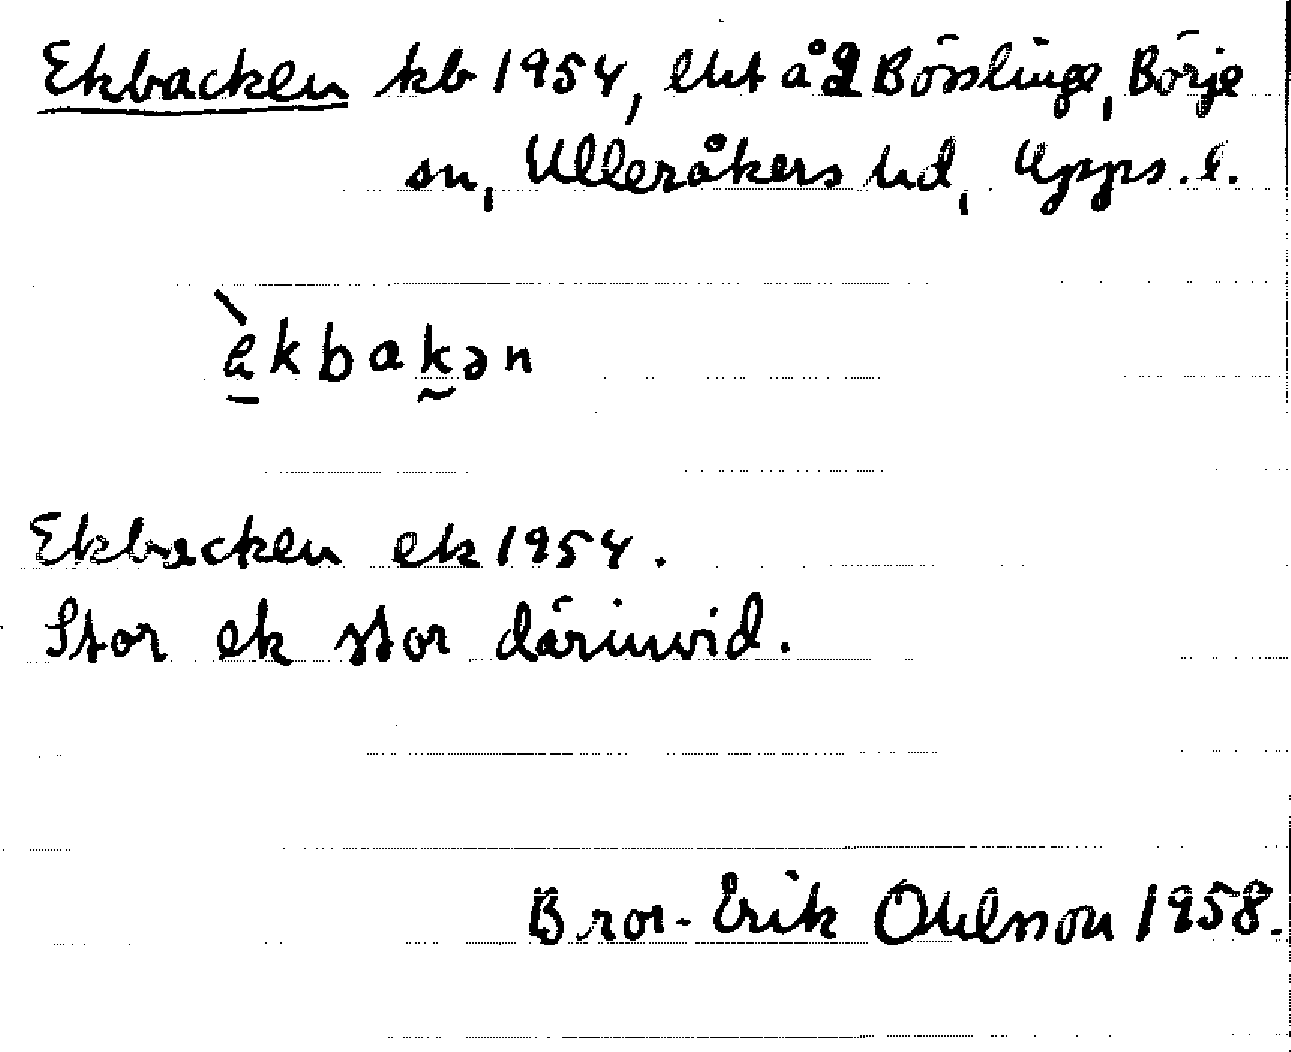 Ekbacken kb 1954, lht å 2 Börslinge, Börje
sn, Ulleråkers hd, Upps. l.
èkbakən
Ekbacken ek 1954.
Stor ek stor därinvid.
Bror-Erik Ohlsson 1958.